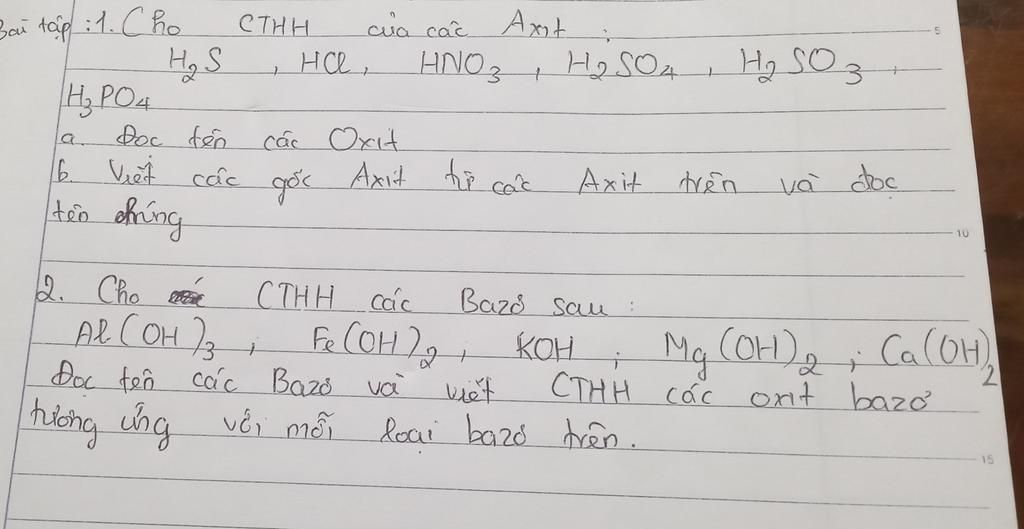 Bài tập :1. Cho CTHH của các Axit :
H₂S , HCl, HNO₃ , H₂SO₄ , H₂SO₃ ,
H₃PO₄
a. Đọc tên các Oxit
b. Viết các gốc Axit từ các Axit trên và đọc
tên chúng
2. Cho CTHH các Bazơ sau :
Al(OH)₃ ; Fe(OH)₂ , KOH ; Mg(OH)₂ ; Ca(OH)₂
Đọc tên các Bazơ và viết CTHH các oxit bazơ
tương ứng với mỗi loại bazơ trên.
5
10
15